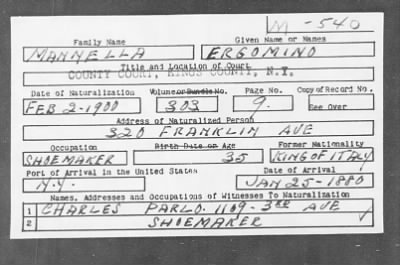 M -540
Family Name Given Name or Names
MANNELLA ERGOMINO
Title and Location of Court
COUNTY COURT, KINGS COUNTY, N.Y.
Date of Naturalization Volume or Bundle No. Page No. Copy of Record No.
FEB 2-1900 303 9. See Over
Address of Naturalized Person
320 FRANKLIN AVE
Occupation Birth Date or Age Former Nationality
SHOEMAKER 35 KING OF ITALY
Port of Arrival in the United States Date of Arrival
N.Y. JAN 25-1880
Names, Addresses and Occupations of Witnesses To Naturalization
1 CHARLES PARLO. 1109-3RD AVE
2 SHOEMAKER